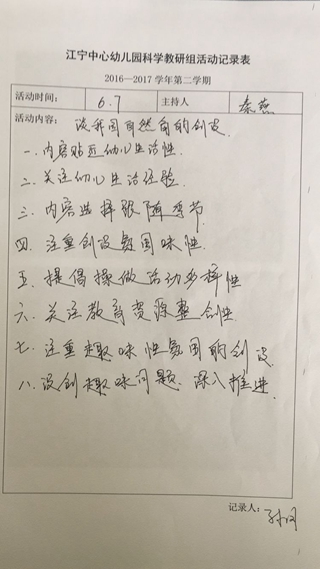 江宁中心幼儿园科学教研组活动记录表
2016—2017 学年第二学期
活动时间: 6.7 主持人 秦燕
活动内容: 谈我园自然角的创设.
一.内容贴近幼儿生活性.
二.关注幼儿生活经验.
三.内容选择张随季节
四.注重创设氛围味性.
五.提倡操做活动多样性
六.关注教育资源整合性
七.注重趣味性氛围的创设
八.设创趣味问题.深入推进.
记录人: